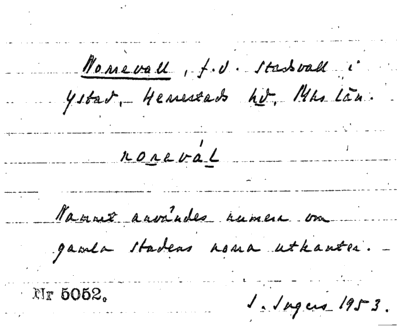 Norrevall, f.d. stadsvall i
Ystad, Herrestads hd, Mhs län.
norevál
Namnet användes numera om
gamla stadens norra utkanter. –
Nr 5052.
I. Ingers 1953.